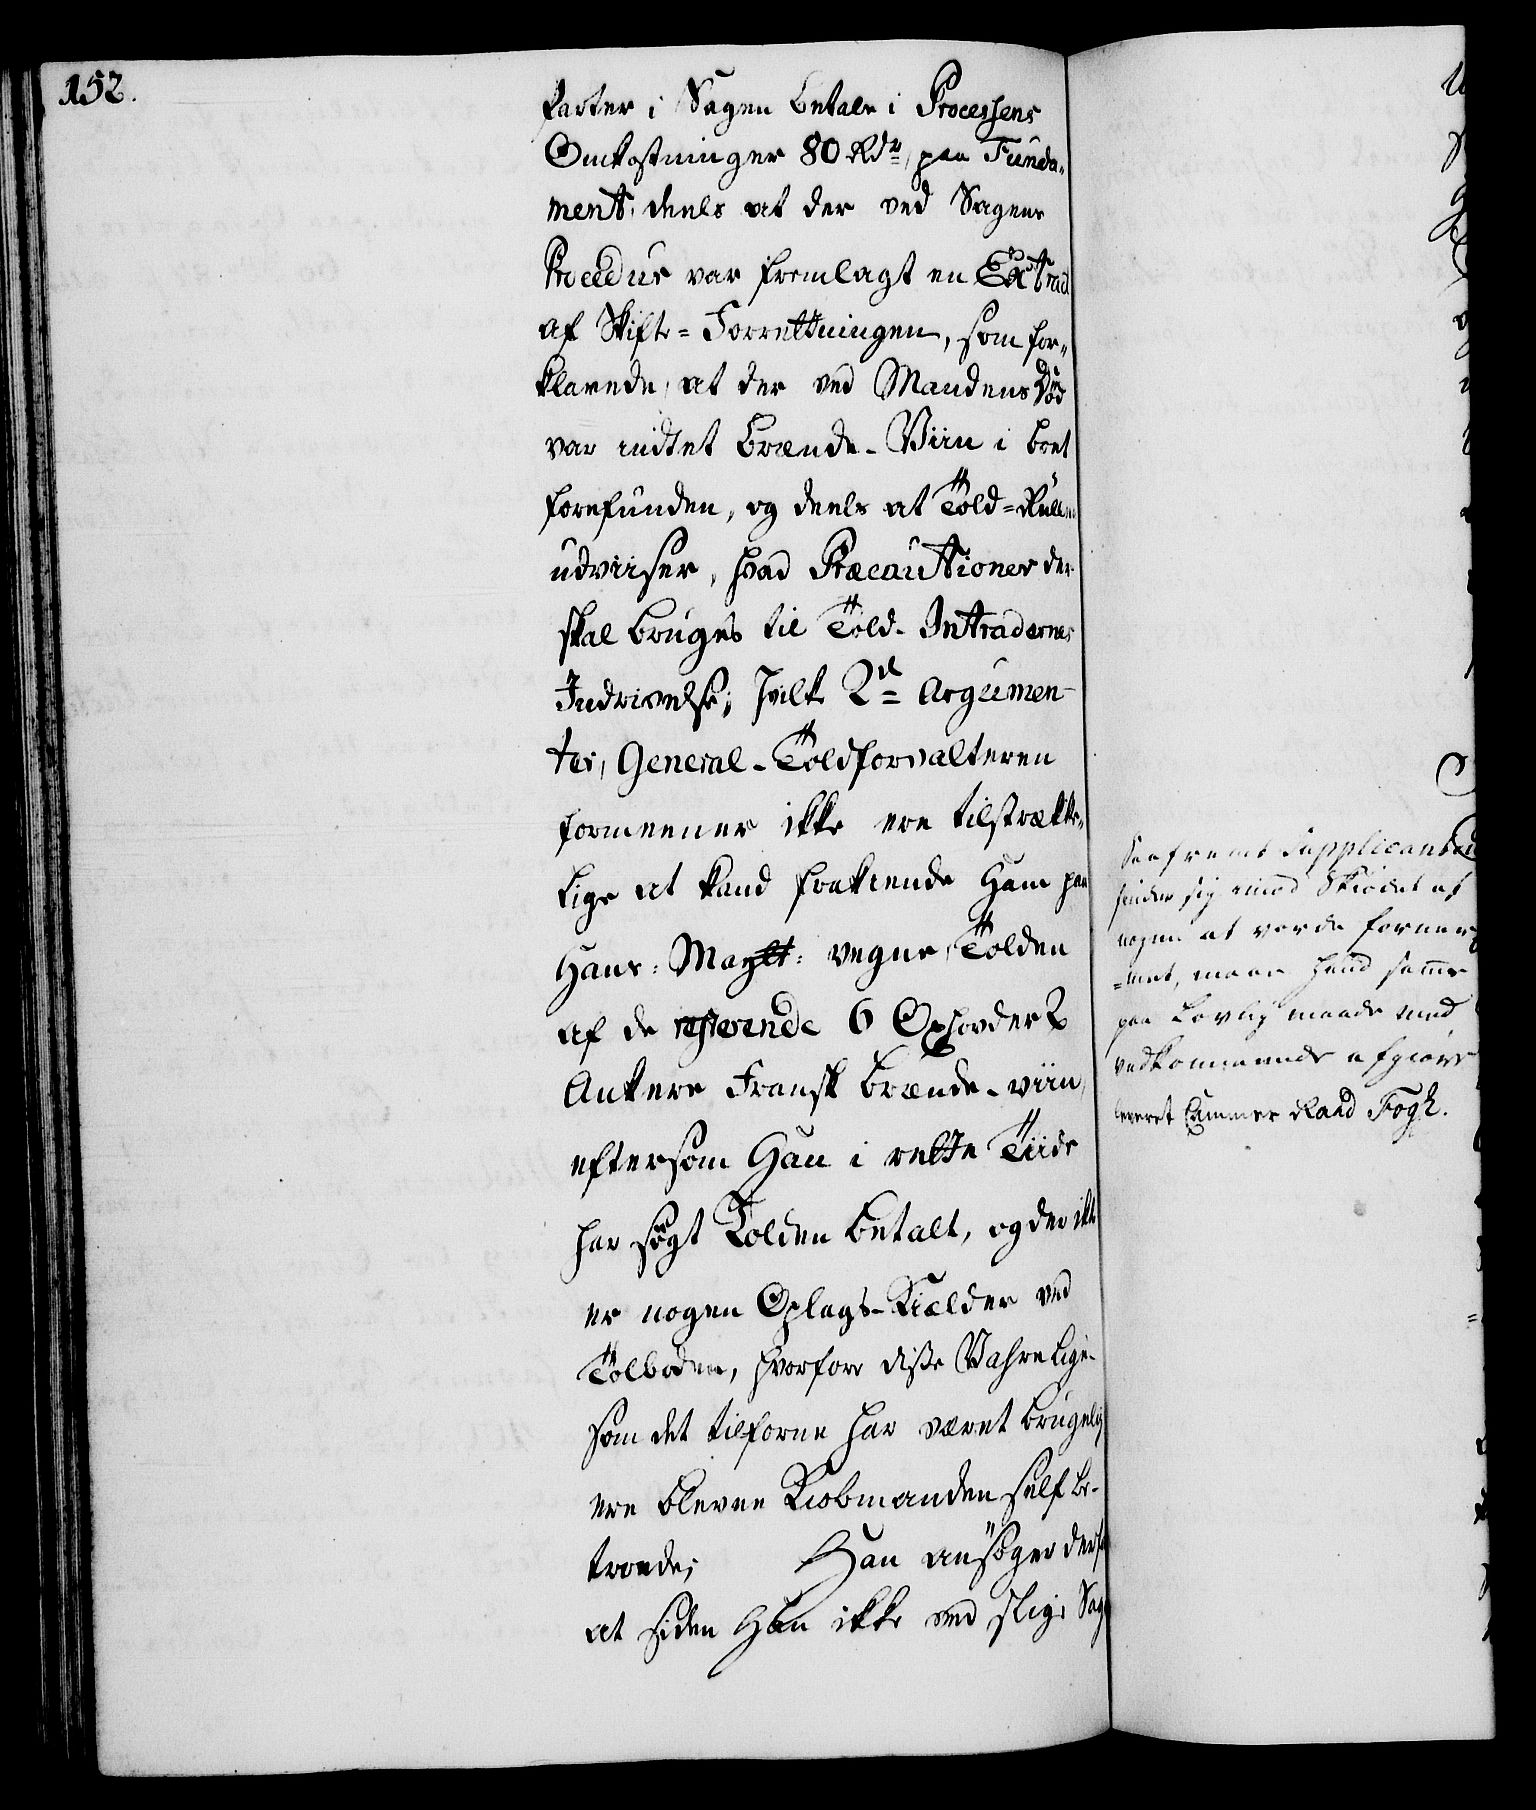 152.
Parter i Sagen betale i Processens
Omkostninger 80 Rdr, paa Funda-
ment, deels at der ved Sagens
Procedur var fremlagt en Extract
af Skifte-Forrettningen, som for-
klarede, at der ved Mandens Død
var indtet Brænde-Viin i boet
forefunden, og deels at Told-Rullen
udviiser, hvad Præcautioner der
skal bruges til Told-Intradernes
Indrivelse; hvilke 2de Argumen-
ter, General-Toldforvalteren
formeener ikke ere tilstrække-
lige at kand frakiende Ham paa
Hans: Maytt: vegne, Tolden
af de resterende 6 Oxhovder 2
Ankere Fransk Brænde-viin,
eftersom Han i rette Tiide
har søgt Tolden betalt, og der ikke
er nogen Oplags-Kielder ved
Tolboden, hvorfore disse Vahre lige-
som det tilforne har været brugelig
ere blevne Kiøbmanden self be-
troede; Han ansøger derfor
at siden Han ikke ved slige Sag
Saafremt Supplicanten
finder sig ved Skiødet af
nogen at være fornær-
-met, maae hand samme
paa Lovlig maade med
vedkommende afgiøre
leveret Cammer Raad Fogh.